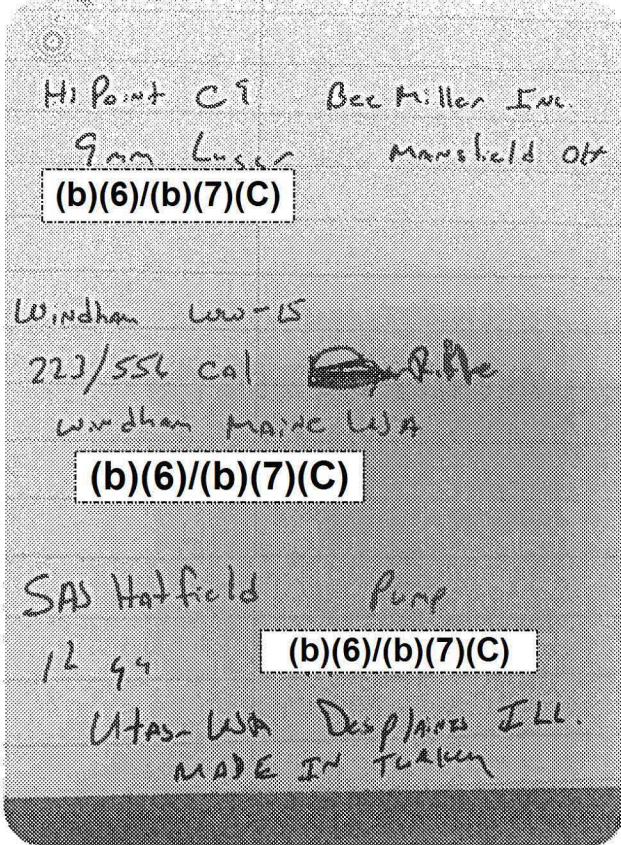 Hi Point C9 Bee Miller Inc.
9mm Luger Mansfield OH
(b)(6)/(b)(7)(C)
Windham WW-15
223/556 Cal Rifle
Windham Maine USA
(b)(6)/(b)(7)(C)
SAS Hatfield Pump
12 ga (b)(6)/(b)(7)(C)
Utas-USA Desplaines ILL.
MADE IN Turkey